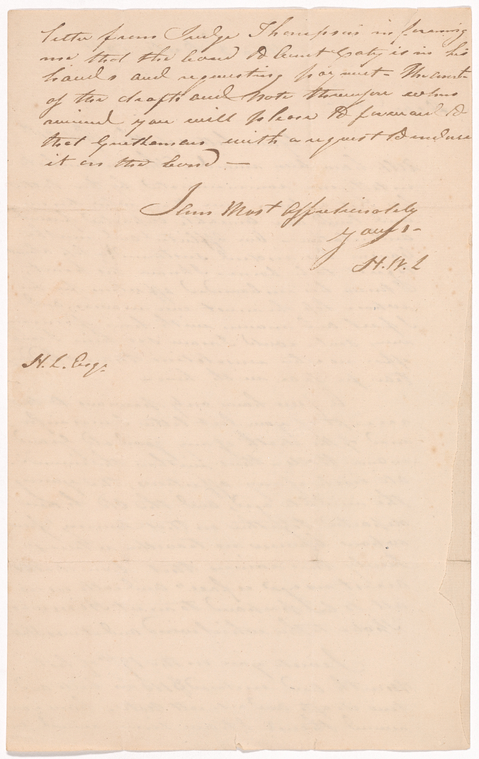 letter from Judge Thompson informing
me that the bond to Count is in his
hands and requesting payment - The amt
of the drafts and note thereupon when
received you will please to forward to
that Gentleman with a request to endorse
it on the bond —
I am Most Affectionately
Yours -
H. W. L
H. L. Esq.